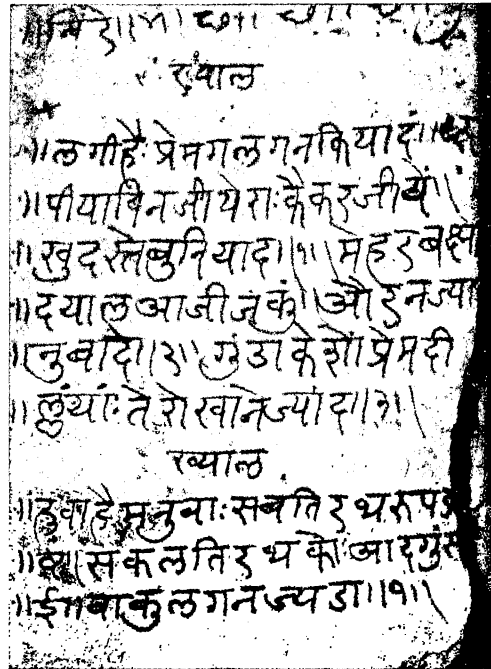 ख्याल
॥लगीहैःप्रेमगलगनकियादं॥
॥पीयाविनजीयेराःकैकरजीयें॥
॥खुदरत्तेबुनियाद॥१॥मेहरबक्ष
॥दयालआजीजकुं॥औरनज्या
॥नुबादे॥२॥गुंडाकेशोंप्रेमदी
॥लुंथांःतेरोखानेज्यांद॥३॥
ख्याल
॥हुवाहैमनुवाःसबतिरथरुप
सकलतिरथकोःआदगुंरु
॥ई॥बाकुलगनज्यडा॥१॥